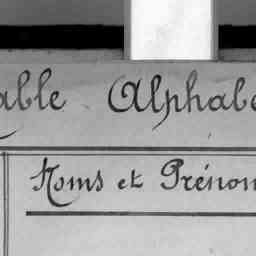 able Alphabe
Noms et Prénom